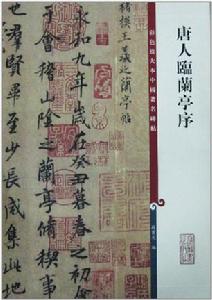 唐人臨蘭亭序
彩色放大本中國著名碑帖
褚模王羲之蘭亭帖
永和九年歲在癸丑暮春之初
于會稽山陰之蘭亭脩稧事
也羣賢畢至少長咸集此地